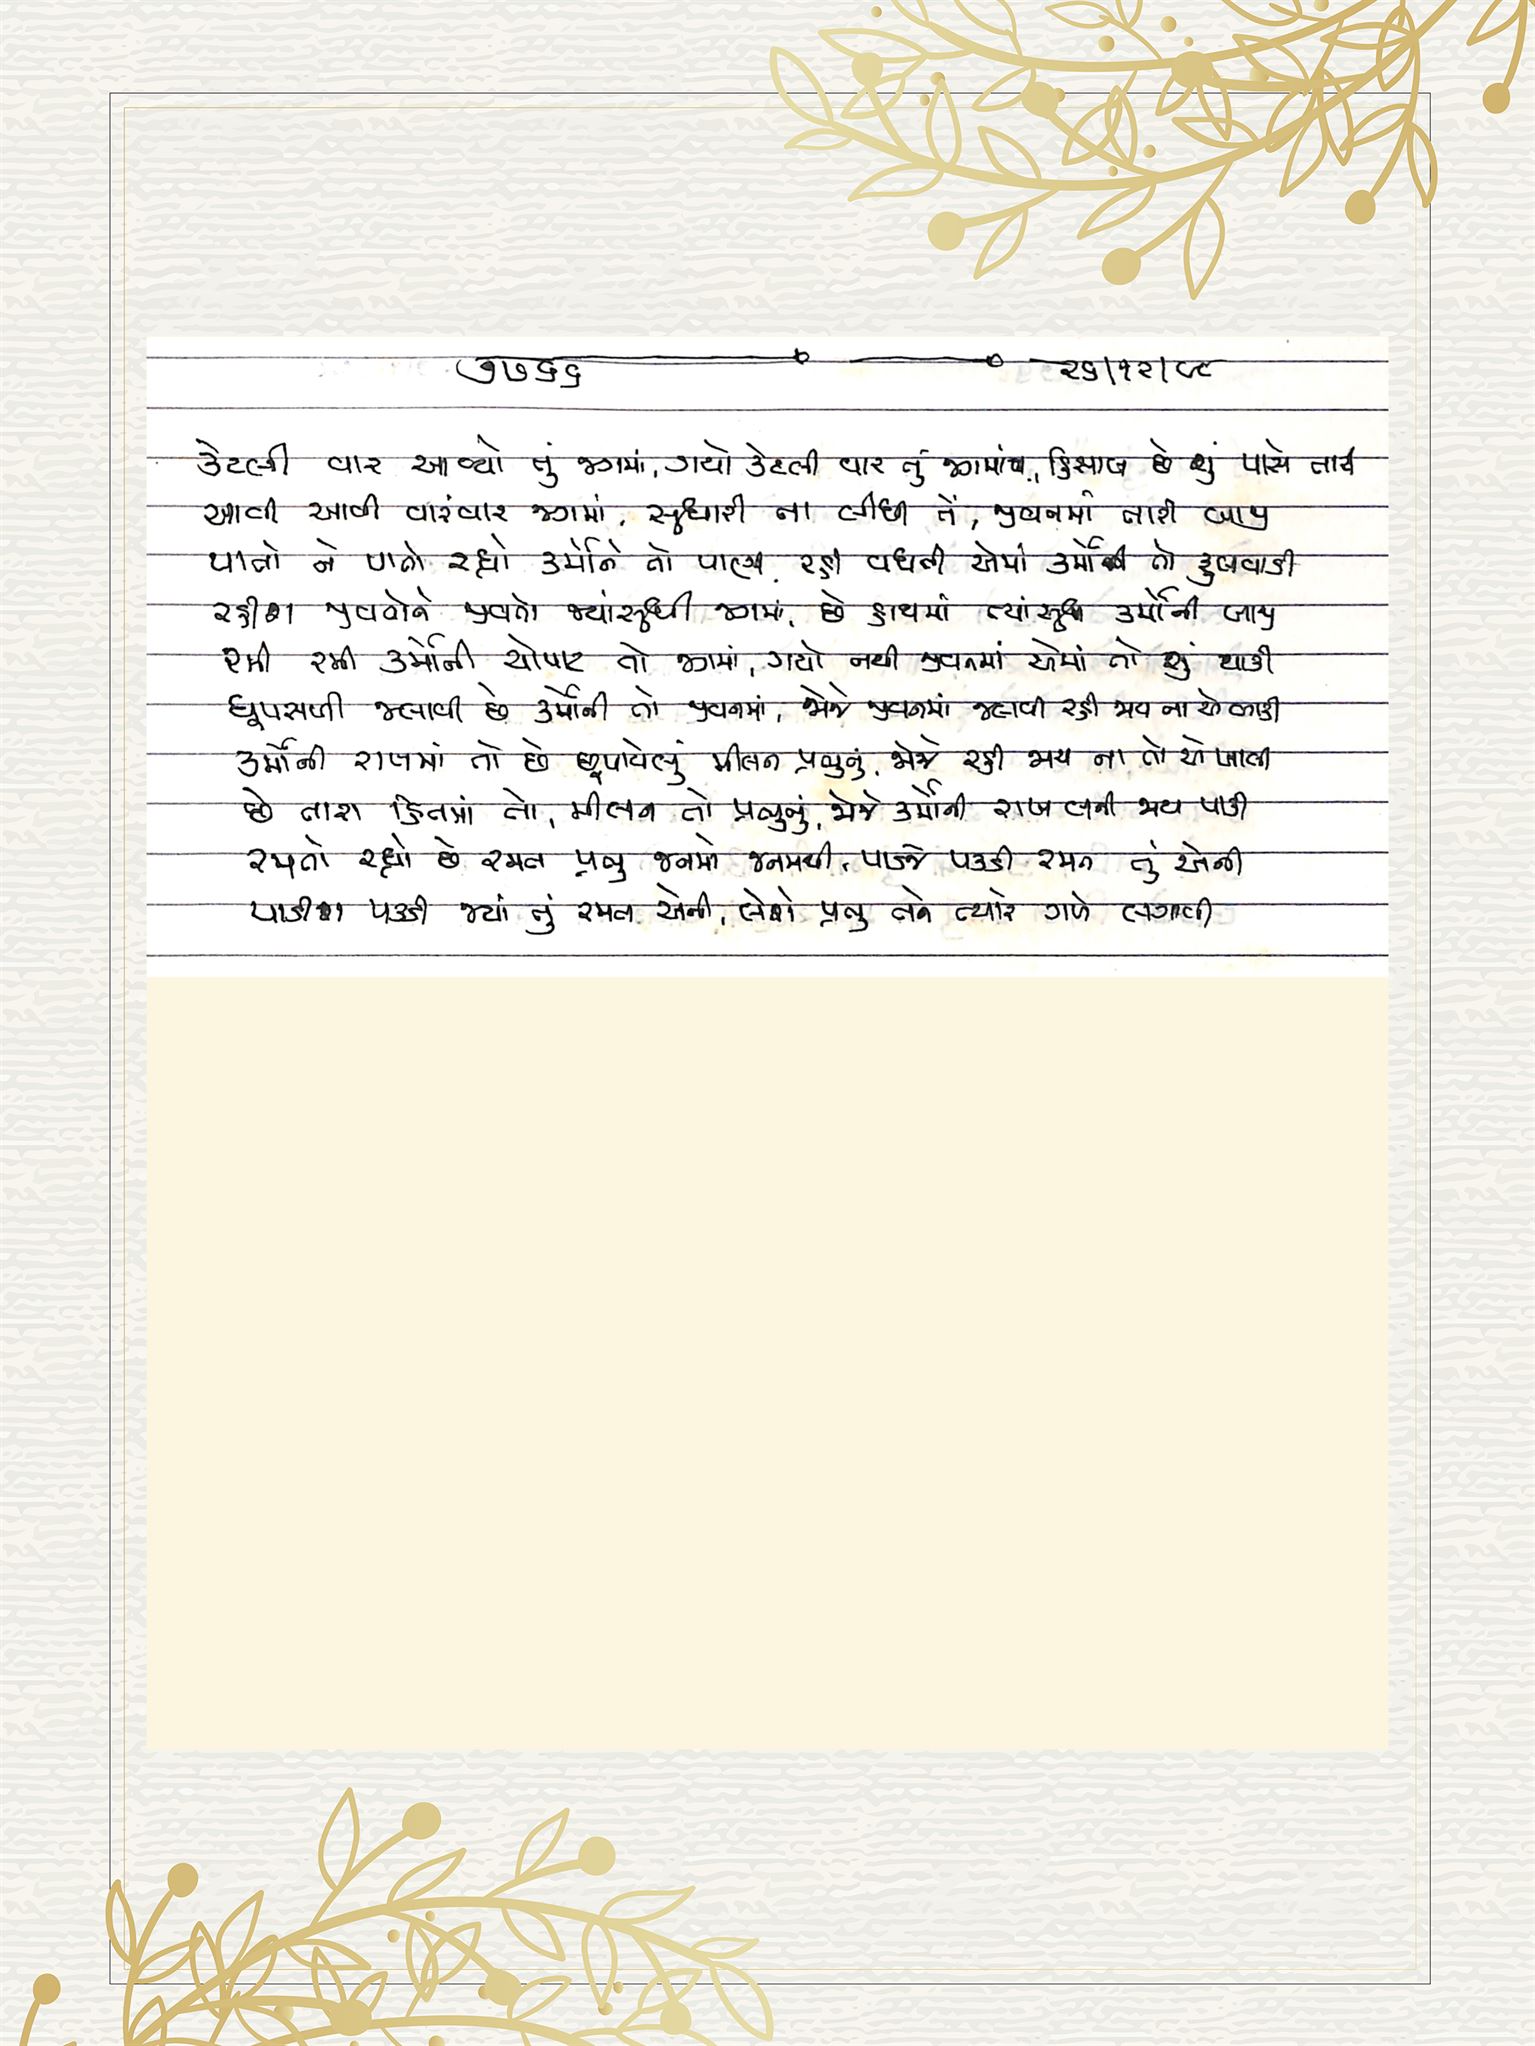 ૭૭૬૬ ૨૬/૧૨/૯૮
કેટલી વાર આવ્યો તું જગમાં, ગયો કેટલી વાર તું જગમાંથી, હિસાબ છે શું પાસે તારી
આવી આવી વારંવાર જગમાં, સુધારી ના લીધી તેં, જીવનમાં તારી બાજી
પીતો ને પાતો રહ્યો કર્મોને તો પાણી, રહી વધતી એમાં કર્મોની તો ફુલવાડી
રહીશ જીવતોને જીવતો જ્યાંસુધી જગમાં, છે હાથમાં ત્યાંસુધી કર્મોની બાજી
રમી રમી કર્મોની ચોપાટ તો જગમાં, ગયો નથી જીવનમાં એમાં તો શું થાકી
ધૂપસળી જલાવી છે કર્મોની તો જીવનમાં, જોજે જીવનમાં જલાવી રહી જાય ના એ લાકડી
કર્મોની રાખમાં તો છે છૂપાયેલું મીલન પ્રભુનું, જોજે રહી જાય ના તો એ ખાલી
છે તારા હિતમાં તો, મીલન તો પ્રભુનું, જોજે કર્મોની રાખ બની જાય પાકી
રમતો રહ્યો છે રમત પ્રભુ જનમો જનમથી, પાડજે પકડી રમત તું એની
પાડીશ પકડી જ્યાં તું રમત એની, લેશે પ્રભુ તને ત્યારે ગળે લગાવી